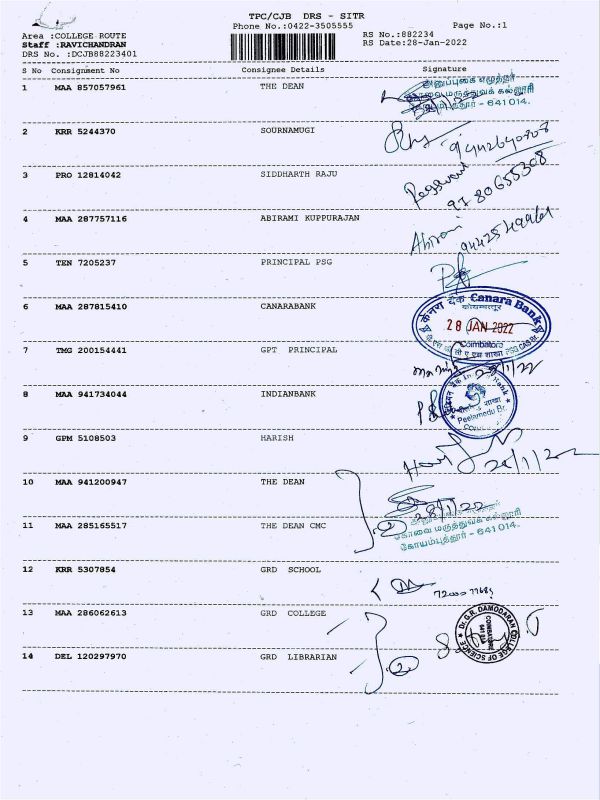 TPC/CJB DRS - SITR
Phone No.:0422-3505555
Page No.:1
Area :COLLEGE ROUTE
RS No.:882234
Staff :RAVICHANDRAN
RS Date:28-Jan-2022
DRS No. :DCJB88223401
S No Consignment No Consignee Details Signature
1 MAA 857057961 THE DEAN
அனுப்புகை எழுத்தர்
கோவை மருத்துவக் கல்லூரி
கோயம்புத்தூர் - 641 014.
2 KRR 5244370 SOURNAMUGI
3 PRO 12814042 SIDDHARTH RAJU
9780655308
4 MAA 287757116 ABIRAMI KUPPURAJAN
Abirami
5 TEN 7205237 PRINCIPAL PSG
6 MAA 287815410 CANARABANK
केनरा बैंक Canara Bank
28 JAN 2022
Coimbatore
7 TMG 200154441 GPT PRINCIPAL
28/1/22
8 MAA 941734044 INDIANBANK
Peelamedu Br.
9 GPM 5108503 HARISH
28/1/202
10 MAA 941200947 THE DEAN
28/1/22
11 MAA 285165517 THE DEAN CMC
கோவை மருத்துவக் கல்லூரி
கோயம்புத்தூர் - 641 014.
2
12 KRR 5307854 GRD SCHOOL
13 MAA 286062613 GRD COLLEGE
Dr. G.R. DAMODARAN COLLEGE OF SCIENCE
COIMBATORE
641 014
14 DEL 120297970 GRD LIBRARIAN
2